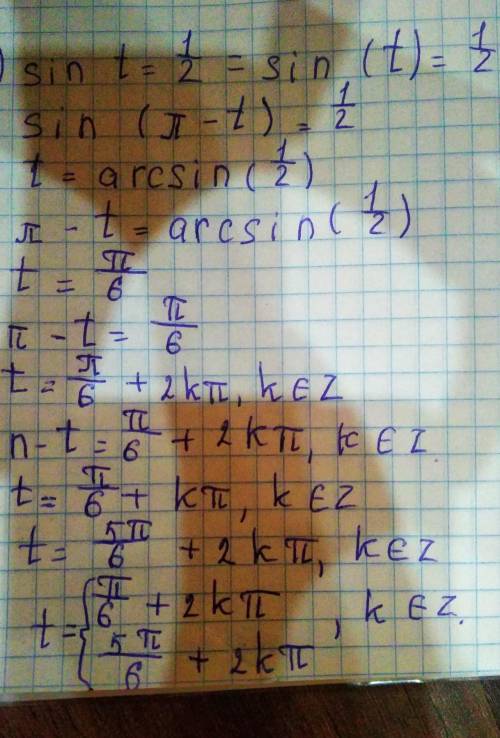 ) sin t = 1/2 = sin (t) = 1/2
sin (π - t) = 1/2
t = arcsin (1/2)
π - t = arcsin (1/2)
t = π/6
π - t = π/6
t = π/6 + 2kπ, k ∈ Z
π - t = π/6 + 2kπ, k ∈ Z.
t = π/6 + kπ, k ∈ Z
t = 5π/6 + 2kπ, k ∈ Z
t = { π/6 + 2kπ
, k ∈ Z.
5π/6 + 2kπ